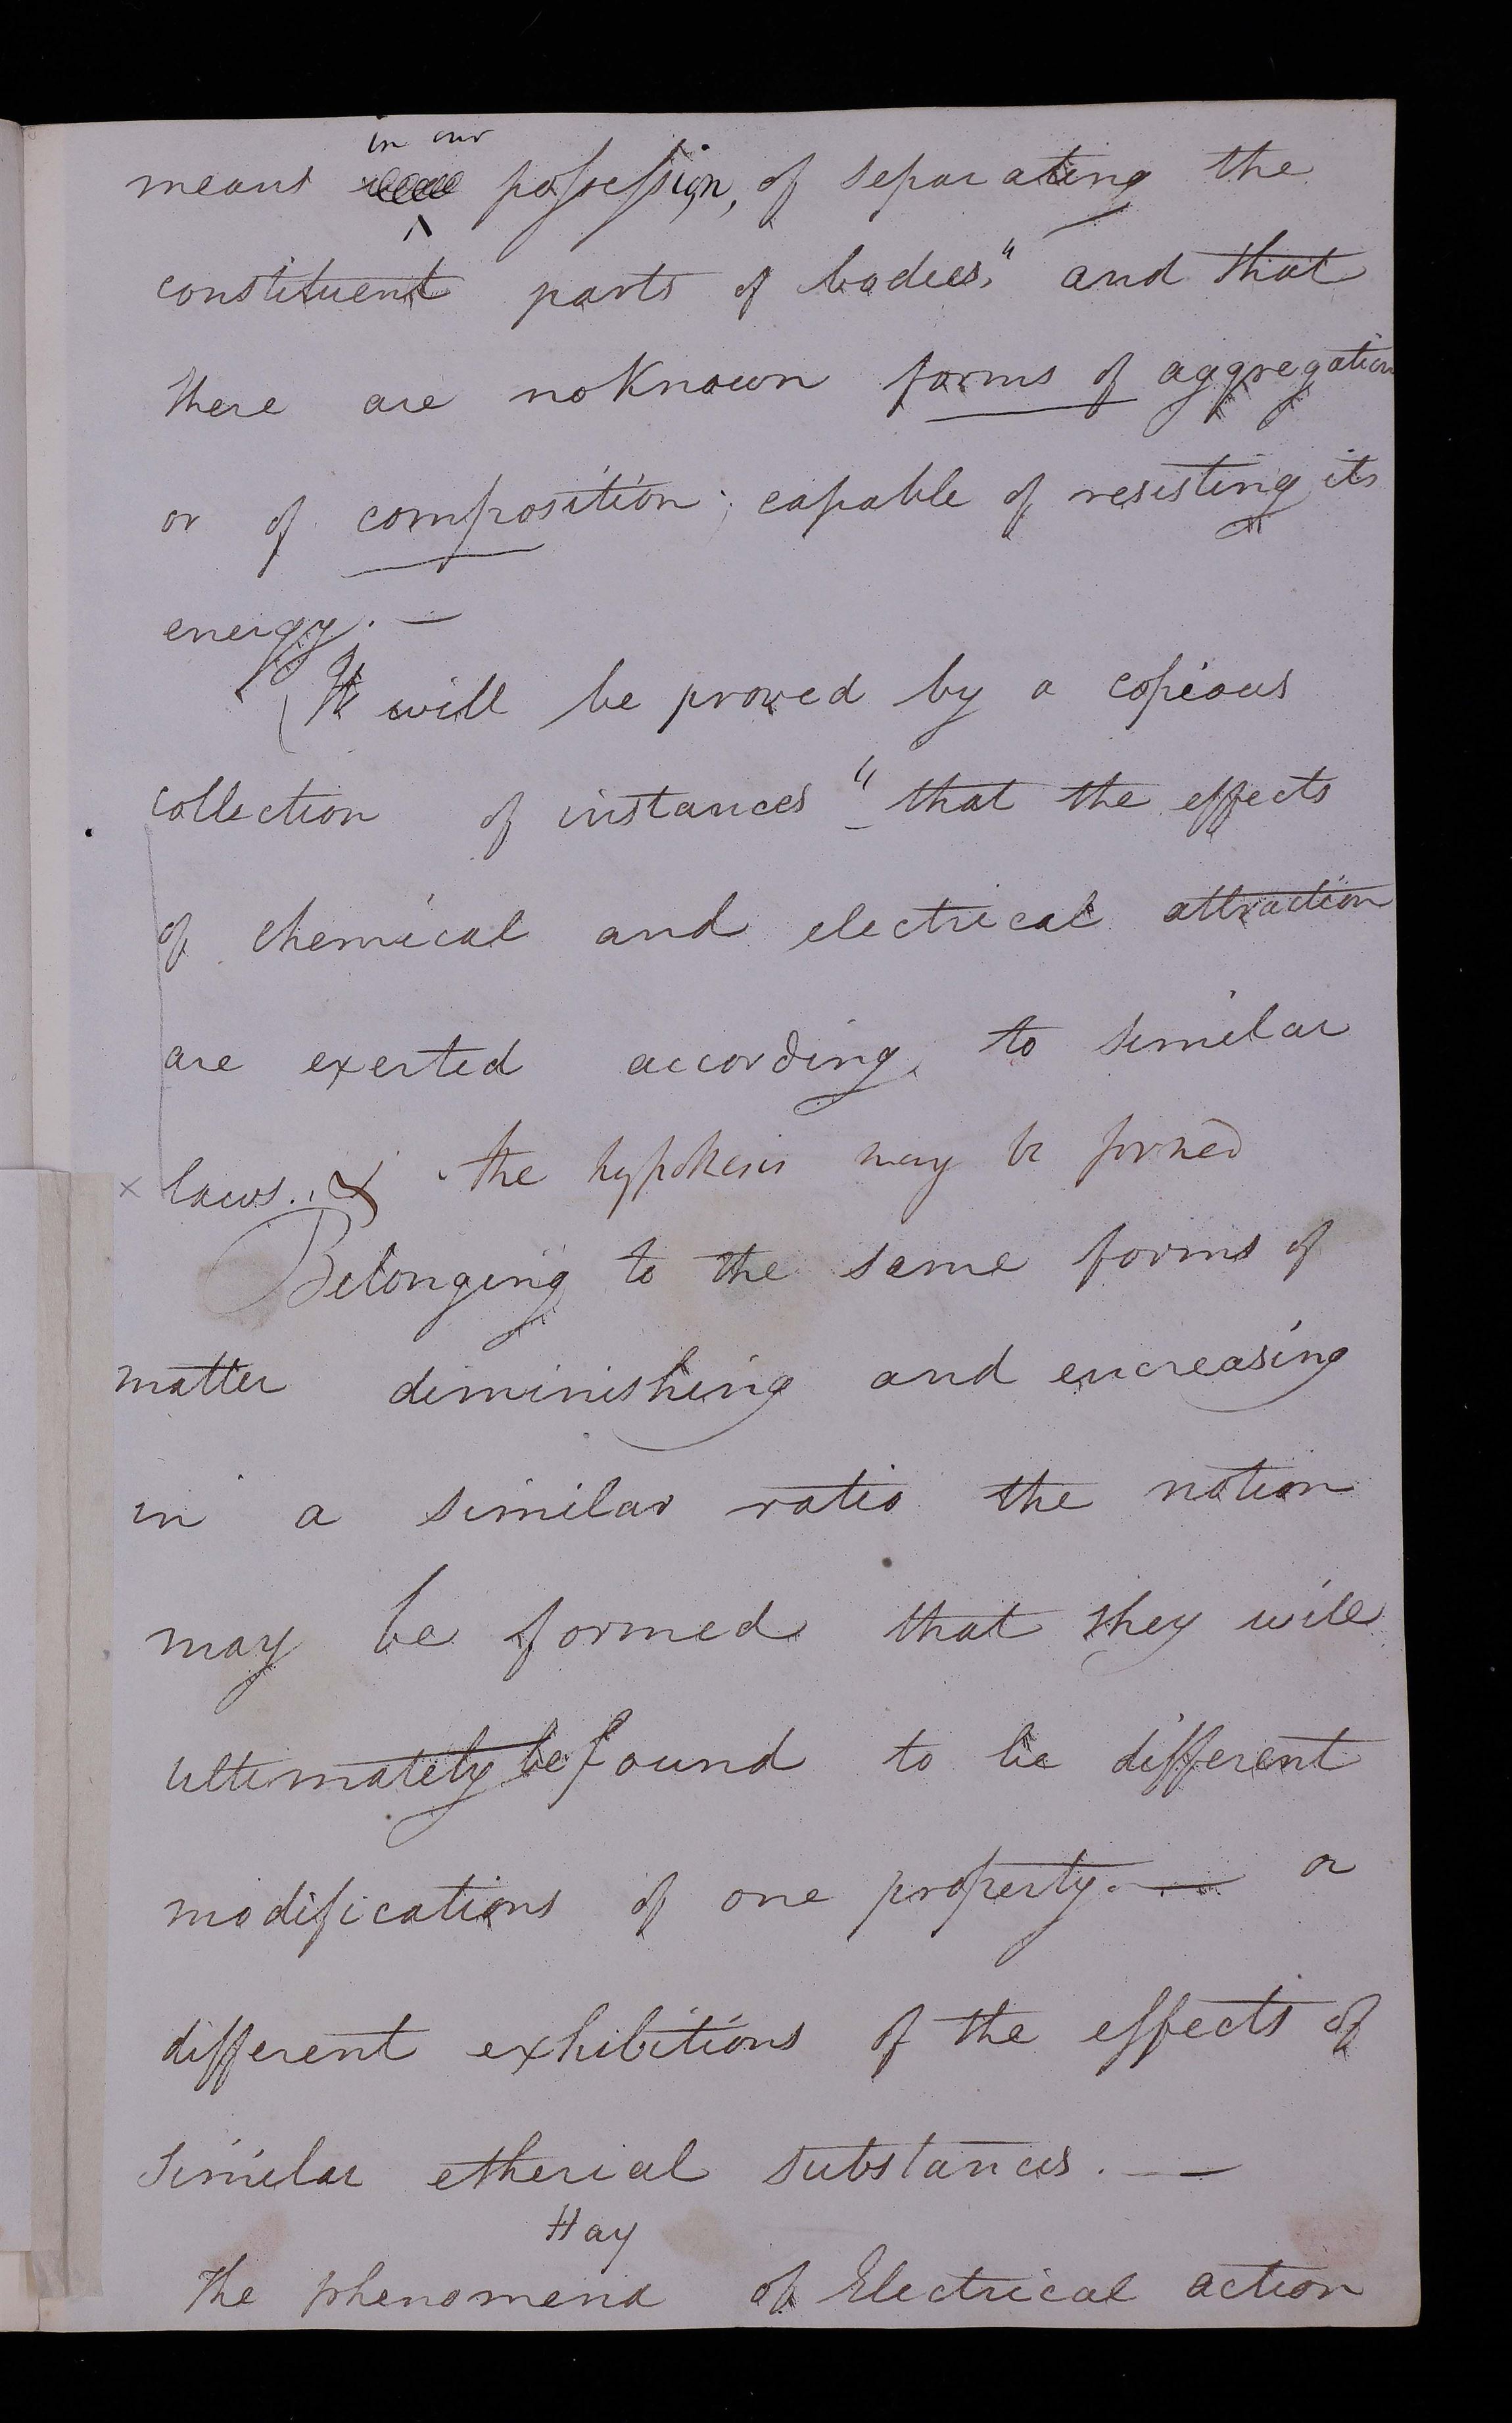 in our
means possession, of separating the
constituent parts of bodies," and that
there are no Known forms of aggregation
or of composition; capable of resisting its
energy. —
It will be proved by a copious
collection of instances "that the effects
of chemical and electrical attraction
are exerted according to similar
x laws. x the hypothesis may be formed
Belonging to the same forms of
matter diminishing and encreasing
in a similar ratio the notion
may be formed that they will
ultimately be found to be different
modifications of one property. — or
different exhibitions of the effects of
similar etherial substances. —
Hay
The phenomena of Electrical action